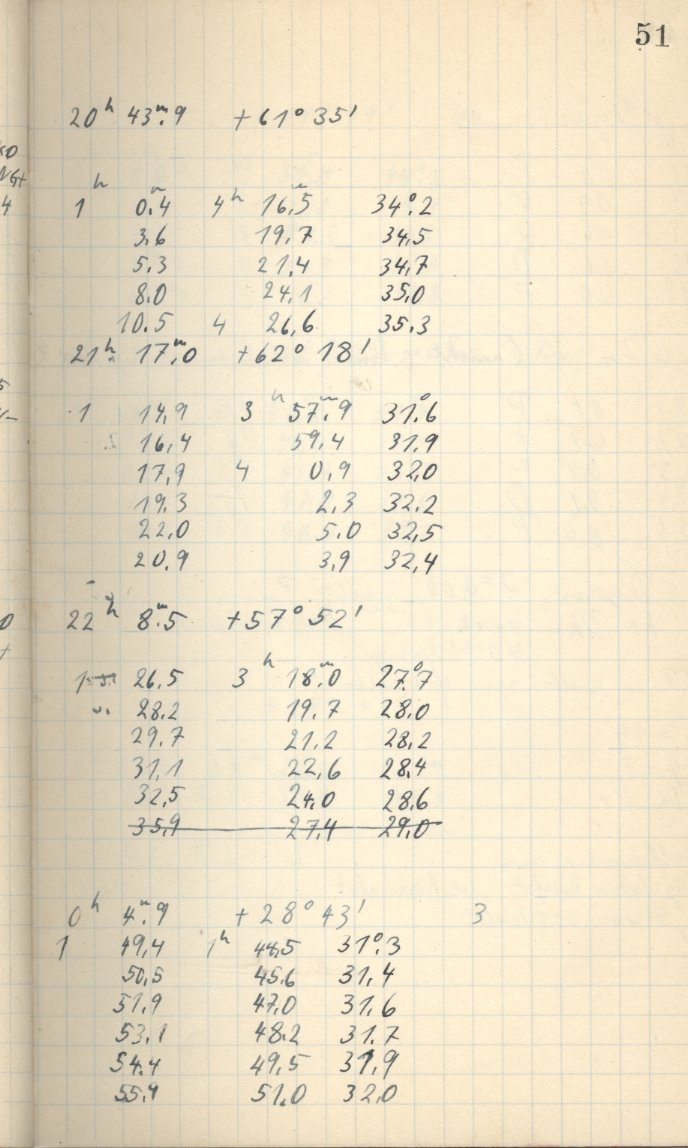 51
20ʰ 43ᵐ.9 +61° 35'
1ʰ 0ᵐ.4 4ʰ 16ᵐ.5 34°.2
3.6 19.7 34.5
5.3 21.4 34.7
8.0 24.1 35.0
10.5 4 26.6 35.3
21ʰ 17ᵐ.0 +62° 18'
1 14.9 3ʰ 57ᵐ.9 31°.6
16.4 59.4 31.9
17.9 4 0.9 32.0
19.3 2.3 32.2
22.0 5.0 32.5
20.9 3.9 32.4
22ʰ 8ᵐ.5 +57° 52'
1 26.5 3ʰ 18ᵐ.0 27°.7
28.2 19.7 28.0
29.7 21.2 28.2
31.1 22.6 28.4
32.5 24.0 28.6
35.9 27.4 29.0
0ʰ 4ᵐ.9 +28° 43' 3
1 49.4 1ʰ 44.5 31°.3
50.5 45.6 31.4
51.9 47.0 31.6
53.1 48.2 31.7
54.4 49.5 31.9
55.9 51.0 32.0